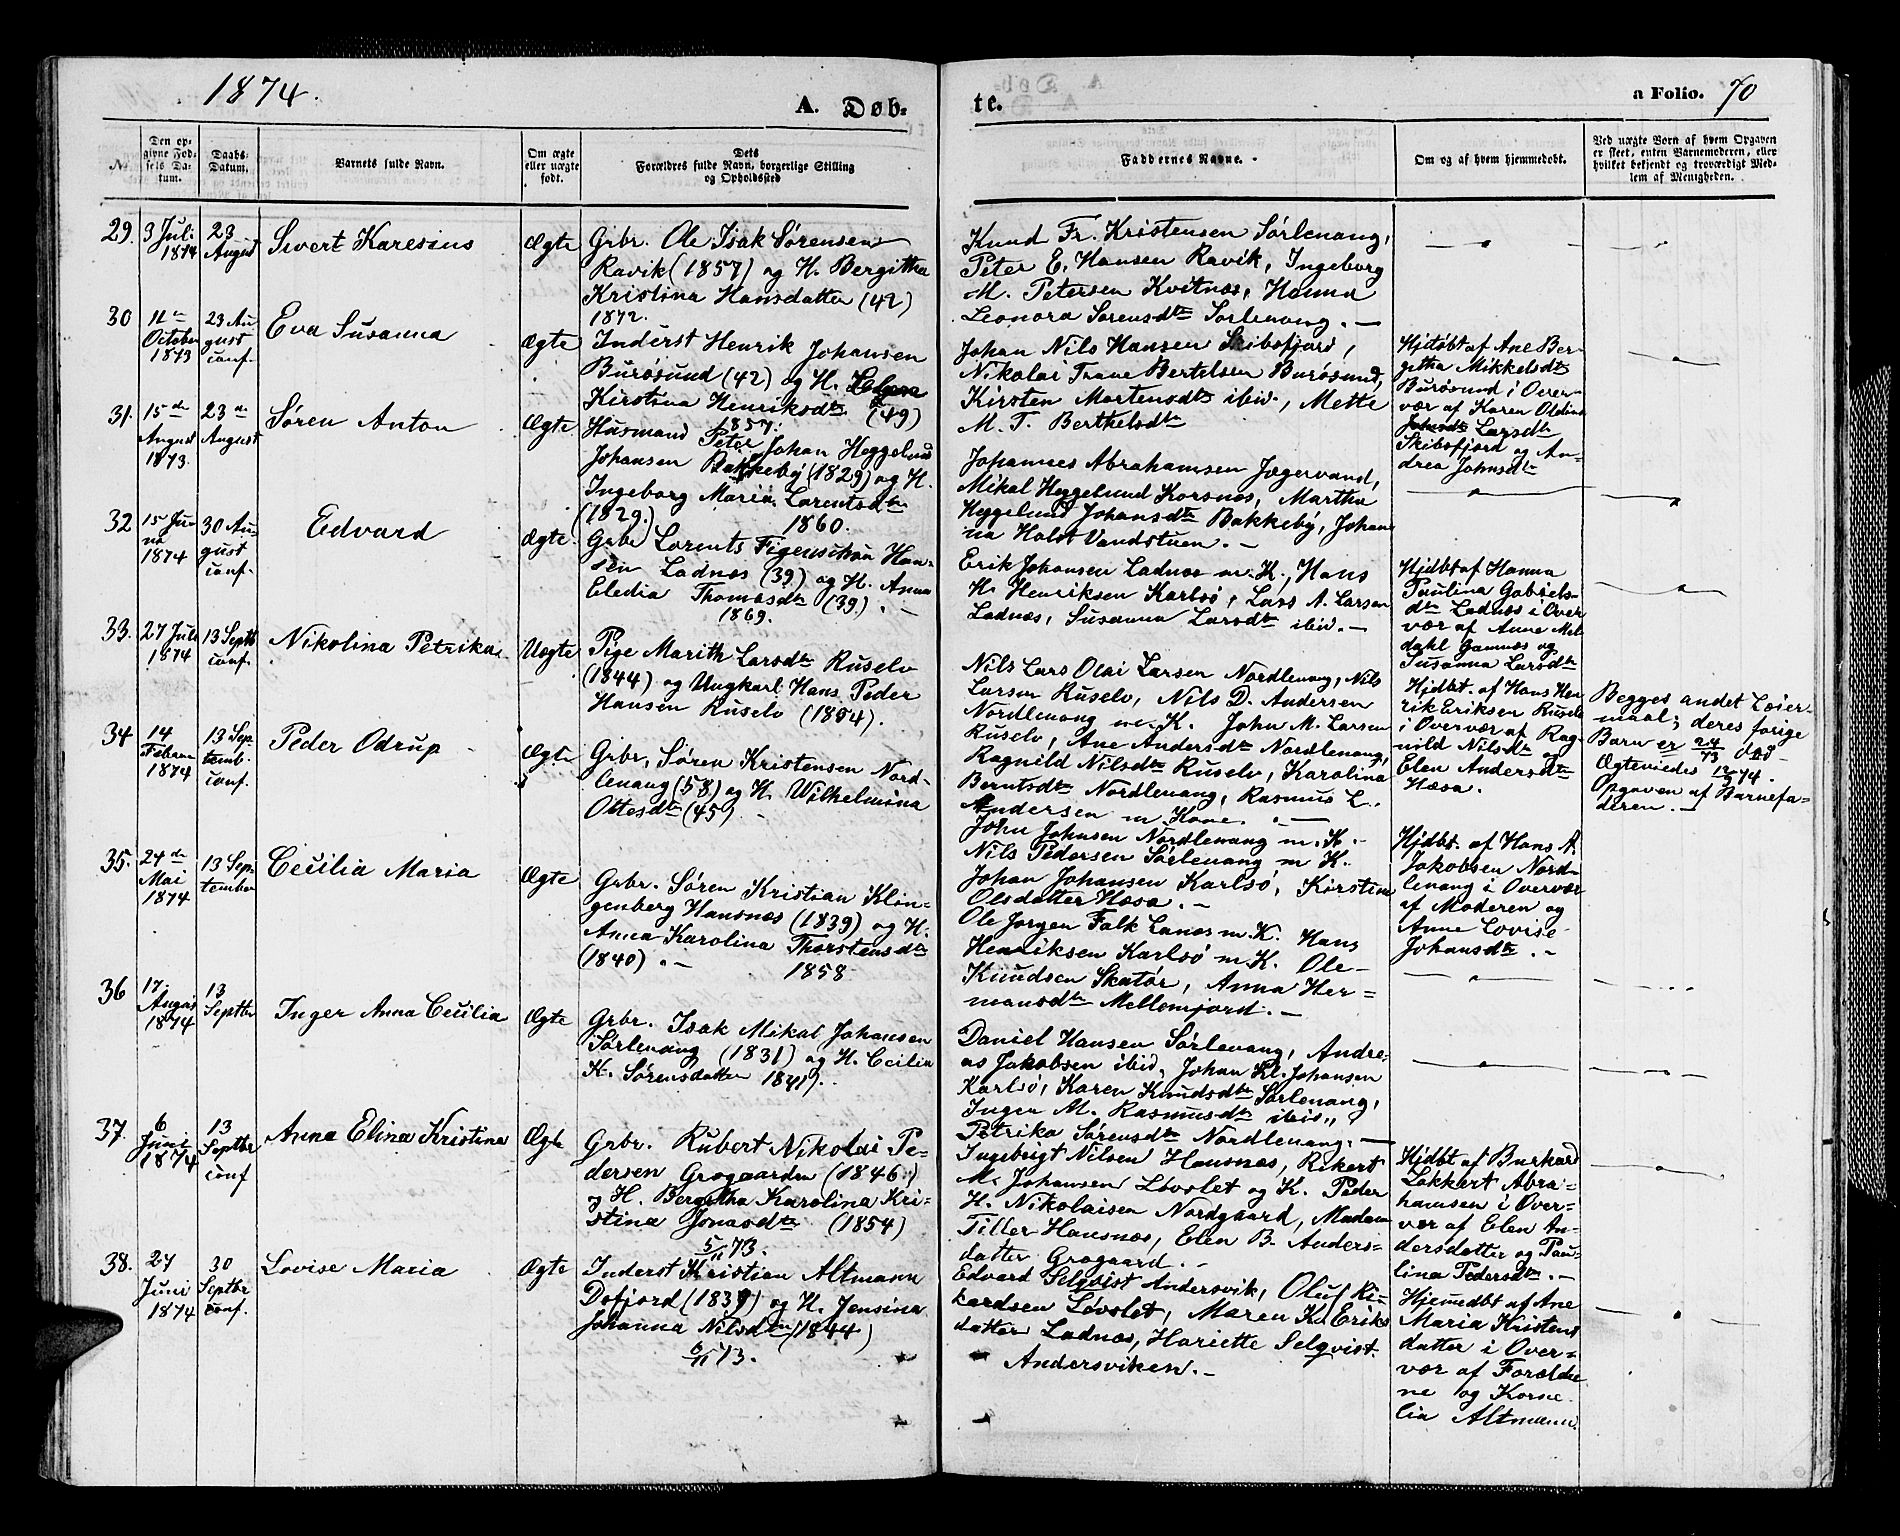 1874.
A. Døb=
te.
a Folio. 70
№
Den op=
givne Fød=
sels Da=
tum.
Daabs=
Datum.
Barnets fulde Navn.
Om ægte
eller uægte
født.
Dets
Forældres fulde Navn, borgerlige Stilling
og Opholdssted
Faddernes Navne.
Om og af hvem hjemmedøbt.
Ved uægte Børn af hvem Opgaven
er skeet, enten Barnemoderen, eller
hvilket bekjendt og troværdigt Med=
lem af Menigheden.
29.
3 Juli
1874
23
August
Sivert Karesius
Ægte
Grbr. Ole Isak Sørensen
Ravik (1857) og H. Bergitha
Kristina Hansdatter (42)
1872.
Knud Fr. Kristensen Sørlenang,
Peter E. Hansen Ravik, Ingeborg
M. Petersen Kvitnæs, Hanna
Leonora Sørensdtr Sørlenang. —
30
11te
October
1873
23 Au
gust
conf.
Eva Susanna
Ægte
Inderst Henrik Johansen
Burøsund (42) og H.
Kirstina Henriksdtr (49)
1857.
Johan Nils Hansen Skibsfjord,
Nikolai Trane Bertelsen Burøsund,
Kirsten Martensdtr ibid., Mette
M. T. Berthelsdtr
Hjdøbt af Ane Ber=
getha Mikkelsdtr
Burøsund i Over=
vær af Karen Oldina
Larsdtr
Skibsfjord og An=
drea Johnsdtr
31.
15de
August
1873.
23de
August
Søren Anton
Ægte
Husmand Peter Johan Heggelund
Johansen Bakkeby (1829) og H.
Ingeborg Maria Lorentsdtr
(1829.)
1860.
Johannes Abrahamsen Jægervand,
Mikal Heggelund Korsnæs, Martha
Heggelund Johansdtr Bakkeby, Johan
na Holst Vandstuen. —
32
15 Ju
ni
1874
30 Au=
gust
conf.
Edvard
Ægte
Grbr Lorents Figenschau Han=
sen Ladnæs (39) og H. Anna
Eledia Thomasdtr (39). —
1869.
Erik Johansen Ladnæs m. K., Hans
H. Henriksen Karlsø, Lars A. Larsen
Ladnæs, Susanna Larsdtr ibid. —
Hjdbt af Hanna
Paulina Gabriels=
dtr Ladnæs i Over
vær af Anne Mel
dahl Gamnæs og
Susanna Larsdtr
33.
27 Juli
1874
13 Septb
conf.
Nikolina Petrika
Uægte
Pige Marith Larsdtr Ruselv
(1844) og Ungkarl Hans Peder
Hansen Ruselv (1854).
Nils Lars Olai Larsen Nordlenang, Nils
Larsen Ruselv, Nils D. Andersen
Nordlenang m. K. John M. Larsen
Ruselv, Ane Andersdtr Nordlenang,
Ragnild Nilsdtr Ruselv, Karolina
Berntsdtr Nordlenang, Rasmus L.
Andersen m. Kone. —
Hjdbt. af Hans Hen
rik Eriksen Ruselv
i Overvær af Rag=
nild Nilsdtr og
Elen Andersdtr
Hæsa.
Begges andet Leier=
maal; deres forige
Barn er 24/73 død
Ægteviedes 13/9 74.
Opgaven af Barnefa=
deren. —
34.
14
Februar
1874
13 Sep
temb.
conf.
Peder Odrup
Ægte
Grbr, Søren Kristensen Nord=
lenang (58) og H. Wilhelmina
Ottesdtr (45)
John Johnsen Nordlenang m. K.
Nils Pedersen Sørlenang m K.
Johan Johansen Karlsø, Kirstine
Olsdatter Hæsa. —
Hjdbt. af Hans A.
Jakobsen Nord=
lenang i Overvær
af Moderen og
Anne Lovise
Johansdtr. —
35.
24de
Mai
1874
13 Sep
tember
Cecilia Maria
Ægte
Grbr. Søren Kristian Klin=
genberg Hansnæs (1839) og H.
Anna Karolina Thorstensdtr
(1840). —
1858
Ole Jørgen Falk Lanæs m. K. Hans
Henriksen Karlsø m K. Ole
Knudsen Skatør, Anna Her=
mansdtr Mellemjord. —
36
17
August
1874
13
Septbr
Inger Anna Cecilia
Ægte
Grbr. Isak Mikal Johansen
Sørlenang (1831) og H. Cecilia
K. Sørensdatter 1841).
Daniel Hansen Sørlenang, Andre=
as Jakobsen ibid, Johan Kl. Johansen
Karlsø, Karen Knudsdtr Sørlenang,
Inger M. Rasmusdtr ibid.,
Petrika Sørensdtr Nordlenang. —
37.
6
Juni
1874
13
Septbr
conf
Anna Elina Kristina
Ægte
Grbr. Rubert Nikolai Pe=
dersen Grogaarden (1846.)
og H. Bergitha Karolina Kri=
stina Jonasdtr (1854)
5/11 73.
Ingebrigt Nilsen Hansnæs, Rikert
M. Johansen Løvslet og K. Peder
H. Nikolaisen Nordgaard, Madam
Tiller Hansnæs, Elen B. Anders=
datter Grogaard. —
Hjdbt af Burkard
Løkkert Abra=
hamsen i Over=
vær af Elen An=
dersdatter og Pau=
lina Pedersdtr. —
38.
27
Juni
1874
30
Septbr
conf.
Lovise Maria
Ægte
Inderst Kristian Altmann
Dofjord (1839) og H. Jensina
Johanna Nilsdtr (1844)
6/11 73.
Edvard Selqvist Andersvik, Oluf Ri=
kardsen Løvslet, Maren K. Eriks
datter Ladnæs, Hariette Selqvist
Andersviken. —
Hjemedbt af Ane
Maria Kristens
datter i Over=
vær af Forældre
ne og Korne
lia Altmann.